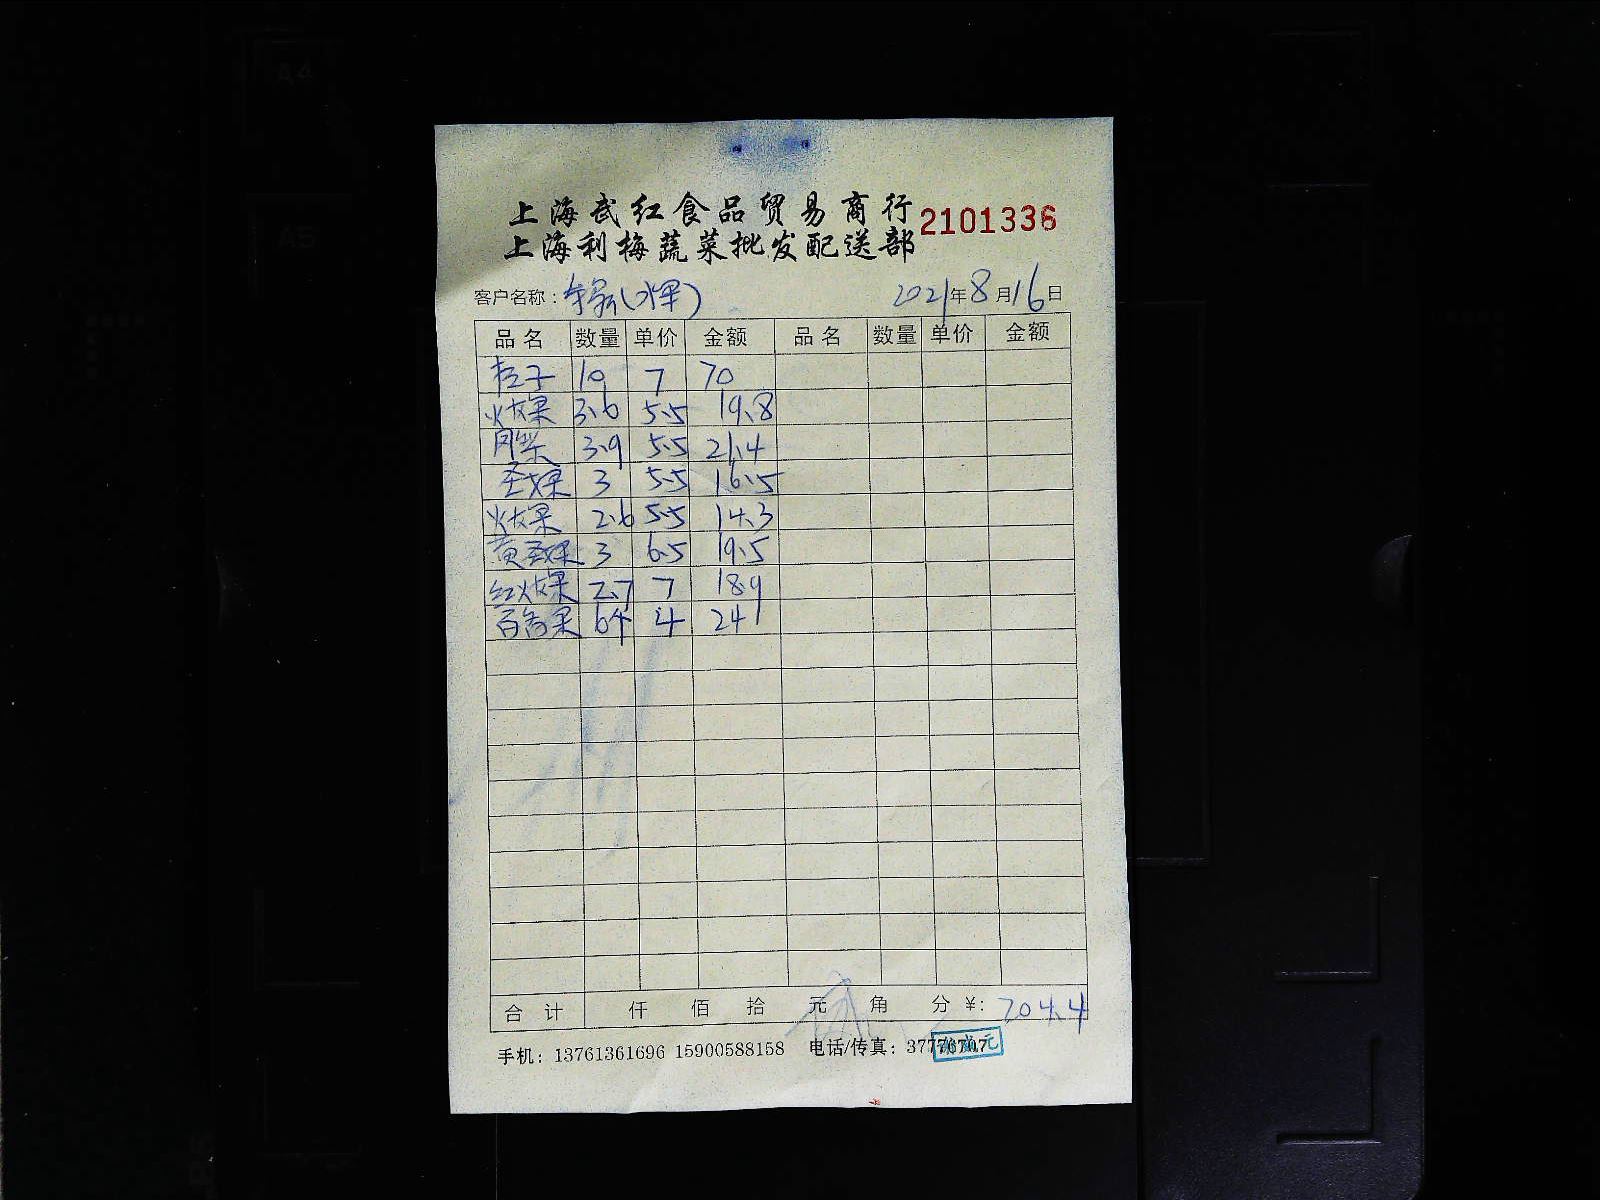 上海武红食品贸易商行 2101336
上海利梅蔬菜批发配送部
客户名称： 2021年8月16日
品名 数量 单价 金额 品名 数量 单价 金额
10 7 70
火龙果 3.6 5.5 19.8
3.9 5.5 21.4
圣女果 3 5.5 16.5
火龙果 2.6 5.5 14.3
黄圣女果 3 6.5 19.5
红火龙果 2.7 7 18.9
百香果 4 24
合计 仟 佰 拾 元 角 分 ¥: 204.4
手机：13761361696 15900588158 电话/传真：37776707
A4
A5